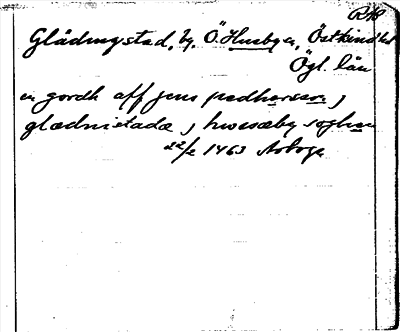 RAP
Glädningstad, by, Ö. Husby sn, Östkinds hd
Ögl. län
en gordh aff jens pædherson j
glædnistadæ j hwsæby soghn
22/2 1463 Arboga